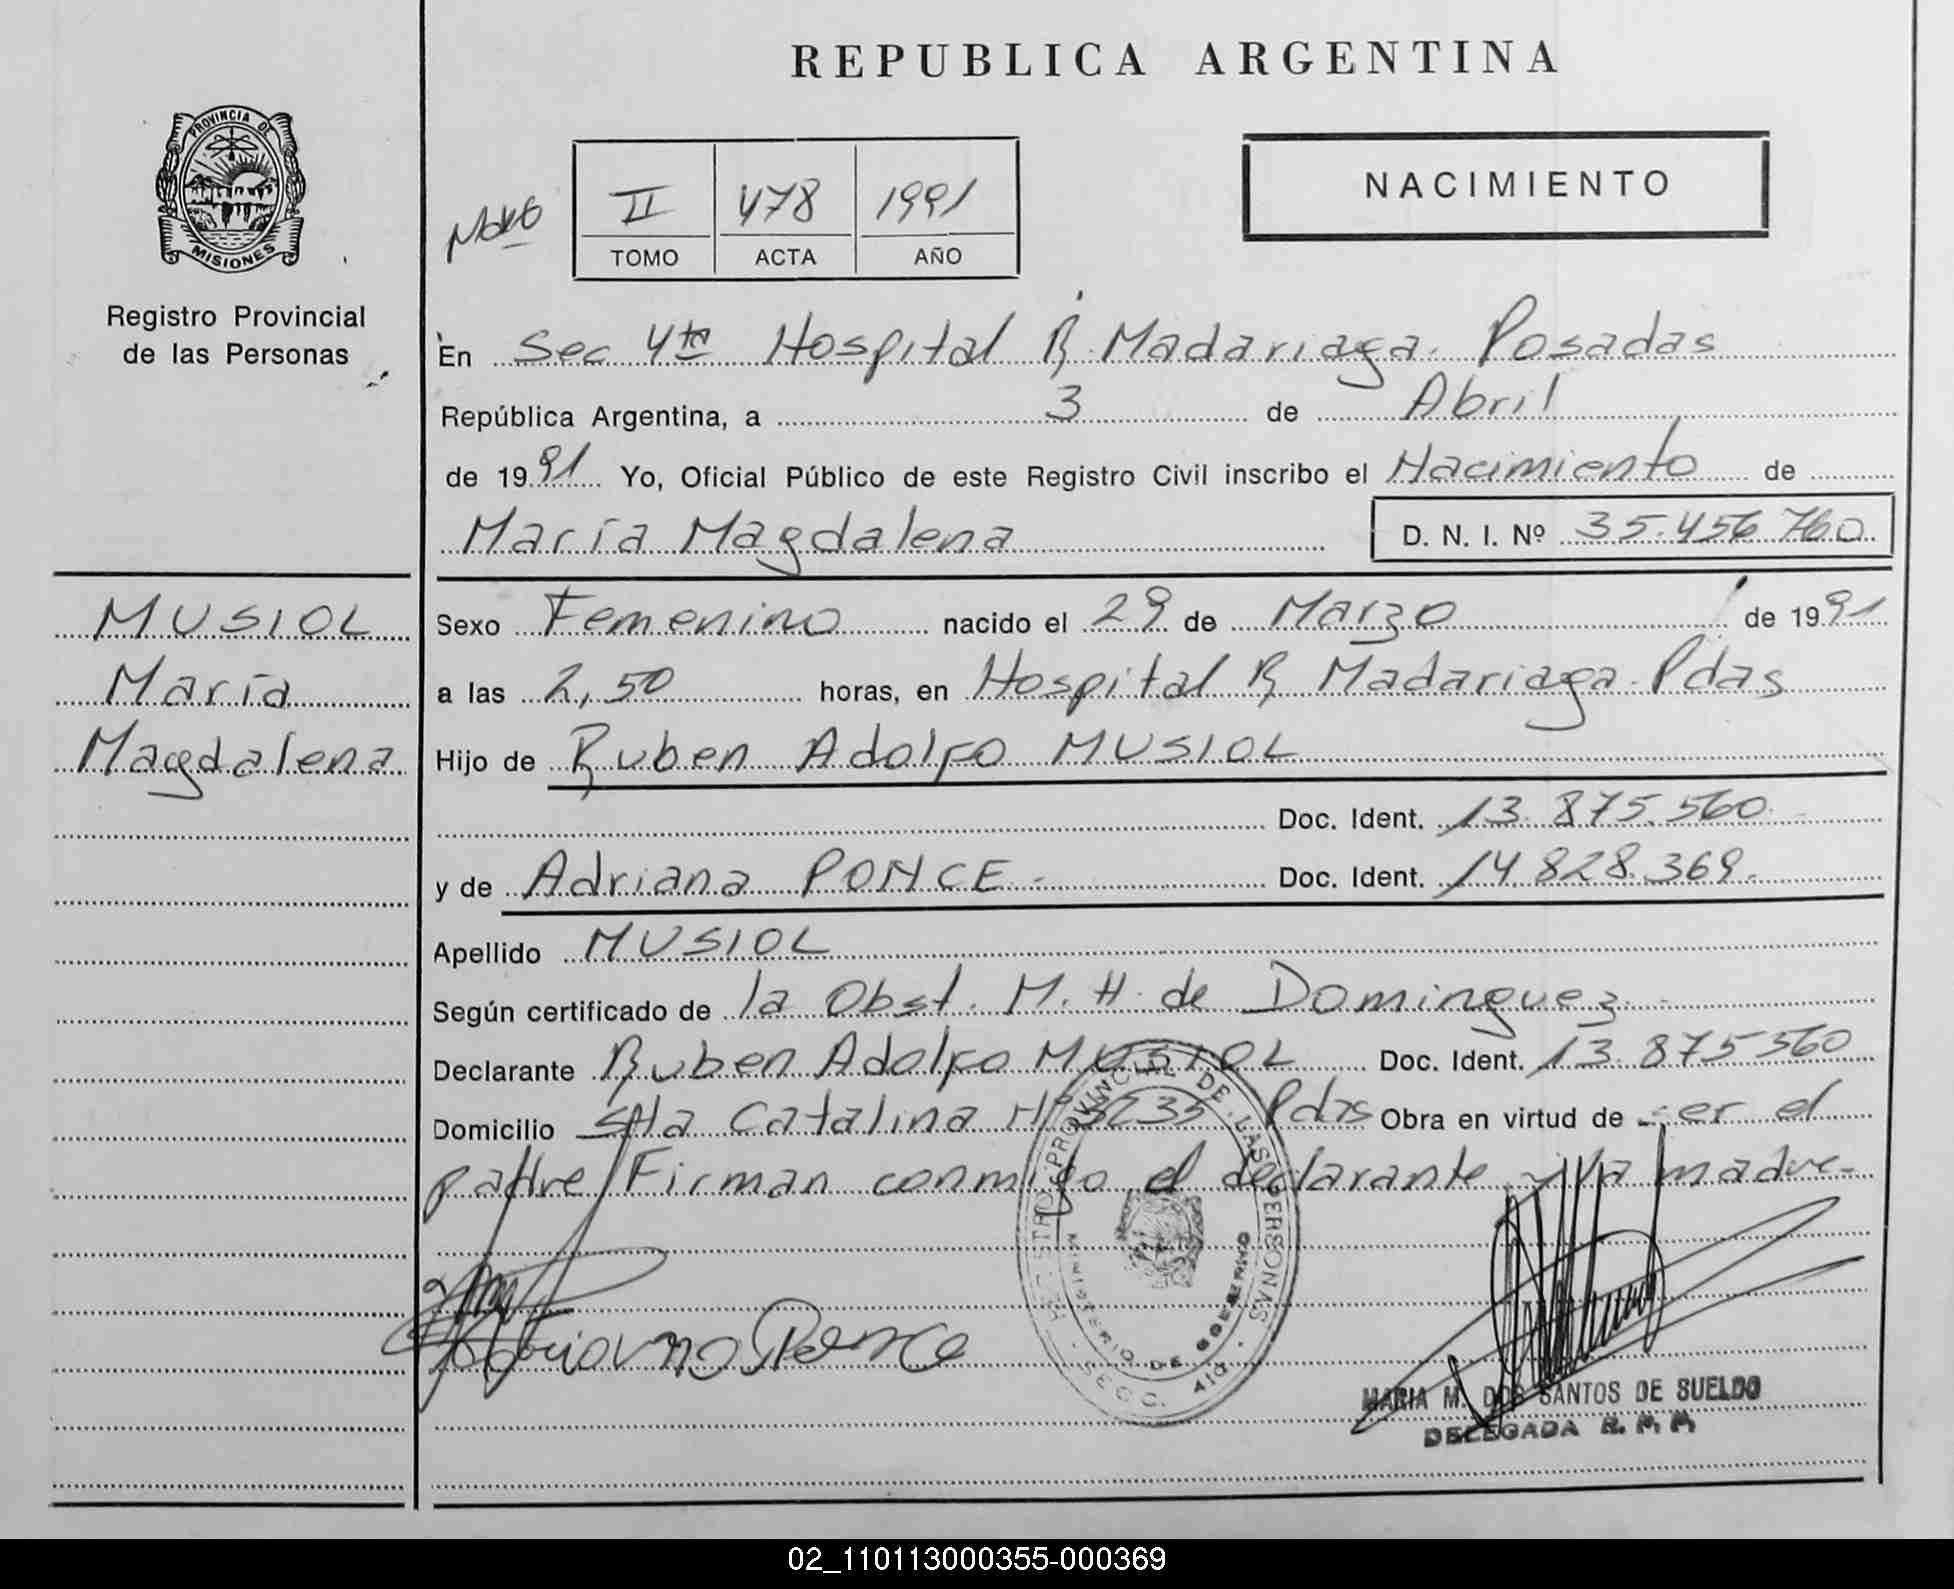 REPUBLICA ARGENTINA
PROVINCIA DE
MISIONES
Registro Provincial
de las Personas
II 478 1991
TOMO ACTA AÑO
NACIMIENTO
En Sec 4ta Hospital R. Madariaga. Posadas
República Argentina, a 3 de Abril
de 1991 Yo, Oficial Público de este Registro Civil inscribo el Nacimiento de
María Magdalena D. N. I. Nº 35.456.760
MUSIOL
María
Magdalena
Sexo Femenino nacido el 29 de Marzo de 1991
a las 2,50 horas, en Hospital R Madariaga. Pdas
Hijo de Ruben Adolfo MUSIOL
Doc. Ident. 13.875.560
y de Adriana PONCE - Doc. Ident. 14.828.369.
Apellido MUSIOL
Según certificado de la Obst. M. H. de Dominguez -
Declarante Ruben Adolfo MUSIOL Doc. Ident. 13.875560
Domicilio Sta Catalina Nº 3235 Pdas Obra en virtud de ser el
padre/Firman conmigo el declarante y la madre-
REGISTRO PROVINCIAL DE LAS PERSONAS
MINISTERIO DE GOBIERNO
Adriana Ponce
MARIA M. DOS SANTOS DE SUELDO
DELEGADA R. P. P.
02_110113000355-000369